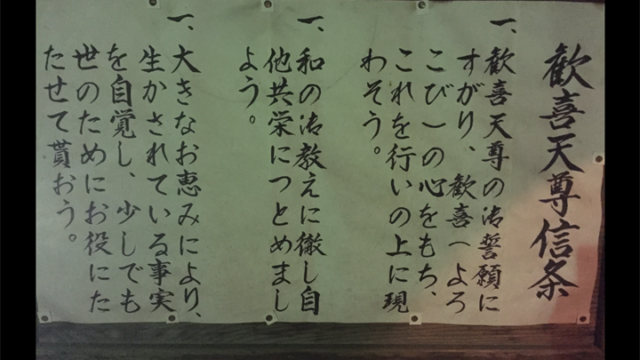 歓喜天尊信条
一、歓喜天尊の法誓願に
すがり、歓喜(よろ
こび)の心をもち、
これを行いの上に現
わそう。
一、和の法教えに徹し自
他共栄につとめまし
よう。
一、大きなお恵みにより、
生かされている事実
を自覚し、少しでも
世のためにお役にた
たせて貰おう。